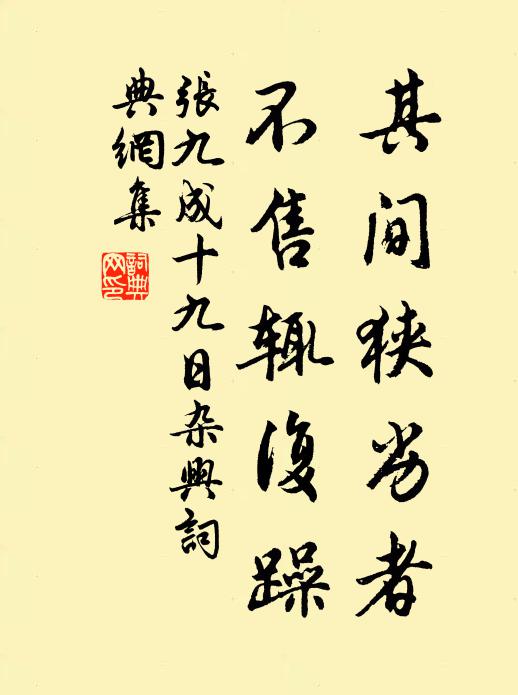 其间狭劣者
不售辄復躁
張九成十九日杂興詞
典網集
詞典
网印